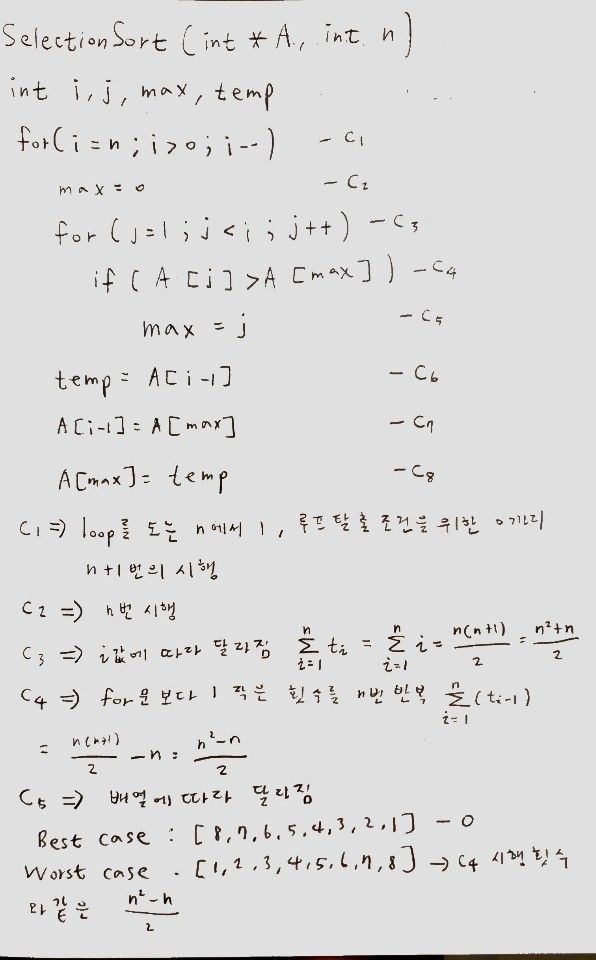 SelectionSort (int * A, int n)
int i, j, max, temp
for(i=n; i>0; i--) - C1
max = 0 - C2
for (j=1; j<i; j++) - C3
if (A[j]>A[max]) - C4
max = j - C5
temp = A[i-1] - C6
A[i-1] = A[max] - C7
A[max] = temp - C8
C1 => loop를 도는 n에서 1, 루프 탈출 조건을 위한 0까지
n+1번의 시행
C2 => n번 시행
C3 => i값에 따라 달라짐 \sum_{i=1}^{n} ti = \sum_{i=1}^{n} i = \frac{n(n+1)}{2} = \frac{n²+n}{2}
C4 => for문보다 1 작은 횟수를 n번 반복 \sum_{i=1}^{n} (ti-1)
= \frac{n(n+1)}{2} - n = \frac{n²-n}{2}
C5 => 배열에 따라 달라짐
Best case : [8,7,6,5,4,3,2,1] - 0
Worst case . [1,2,3,4,5,6,7,8] → C4 시행 횟수
와 같은 \frac{n²-n}{2}